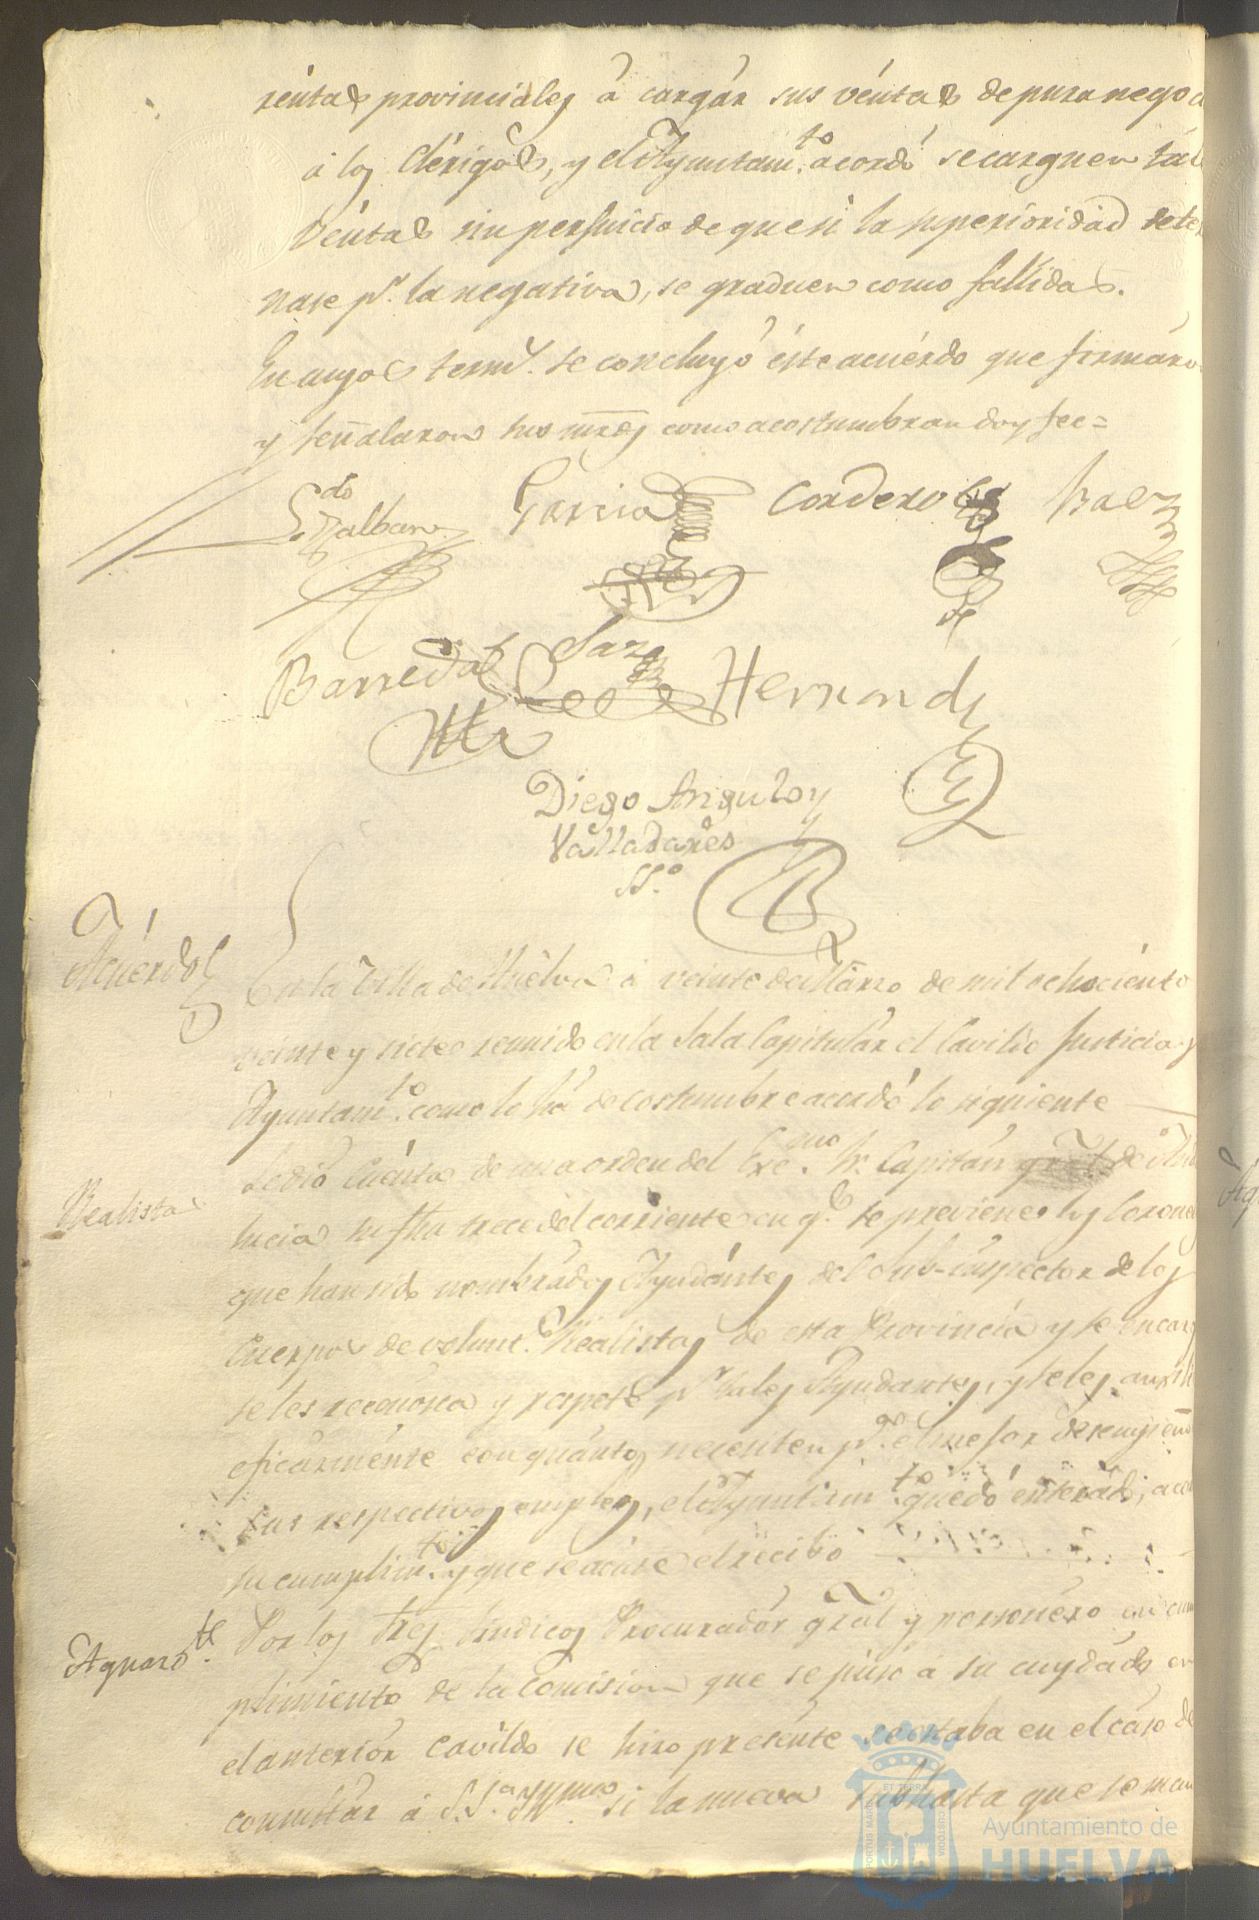 rentas provinciales á cargár sus véntas de pura nego
á los Clérigos, y el Ayuntam.to acordó se carguen tál
véntas sin perjuicio de que si la superioridád dete
nase p.r la negativa, se graduen como fallidas.
En cuyos term.s se concluyó éste acuérdo que firmáro
y señalaron sus mrẽs como acostumbran doy fee =
L.do Balban Garcia Cordero Baez
Barreda Saz Hernandz
Diego Angulo y
Valladares
SS.o
Acuérdo
En la Villa de Huelva á veinte de Márzo de mil ochociénto
veinte y siete reunido en la Sala Capitulár el Cavildo Justicia y
Ayuntam.to como lo há de costumbre acordó lo siguiente
Se dió Cuénta de una orden del Exc.mo Sr. Capitán grãl de Anda
Realistas
lucia su fha trece del corriente en q.e se previene los Corone
que han sido nombrados Ayudántes del Sub-inspector de los
Cuerpos de volunt.s Realistas de esta Provincia y se encar
se les reconosca y respete p.r tales Ayudantes, y se les auxili
eficazménte con quántos necesiten p.a el mejor desempeñ
sus respectivos empleos, el Ayuntam.to quedó enterádo, acor
su cumplim.to y que se acúse el recibo
Aguard.te
Por los Sres Sindicos Procuradór grãl y personéro en cum
plimiento de la Comision que se púso á su cuydádo en
el anteriór Cavildo se hizo presénte se estaba en el cáso de
consultár á S.S.a Yll.ma si la nueva subhasta que se man
Ayuntamiento de
HUELVA